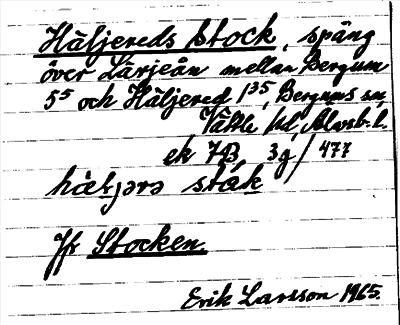 Häljereds stock, spång
över Lärjeån mellan Bergum
5⁵ och Häljered 1³⁵, Bergums sn,
Vättle hd, Älvsb. l.
ek 7B, 3g / 477
Jfr Stocken.
Erik Larsson 1965.